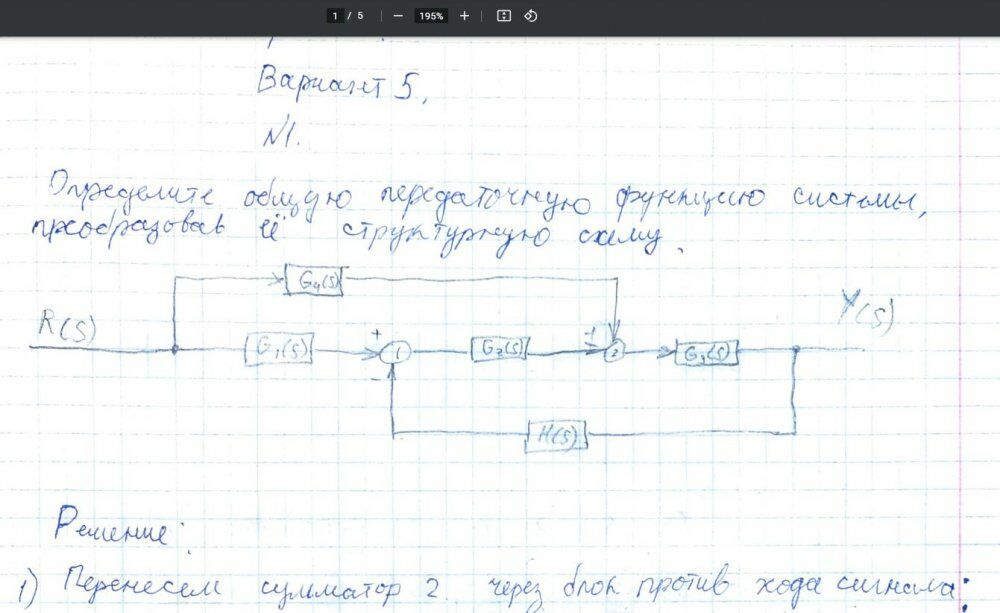 1 / 5 195%
Вариант 5,
N1.
Определите общую передаточную функцию системы,
преобразовав её структурную схему.
G4(s)
R(s) Y(s)
G1(s) + 1 G2(s) + 2 G3(s)
-
H(s)
Решение:
1) Перенесем сумматор 2. через блок против хода сигнала: